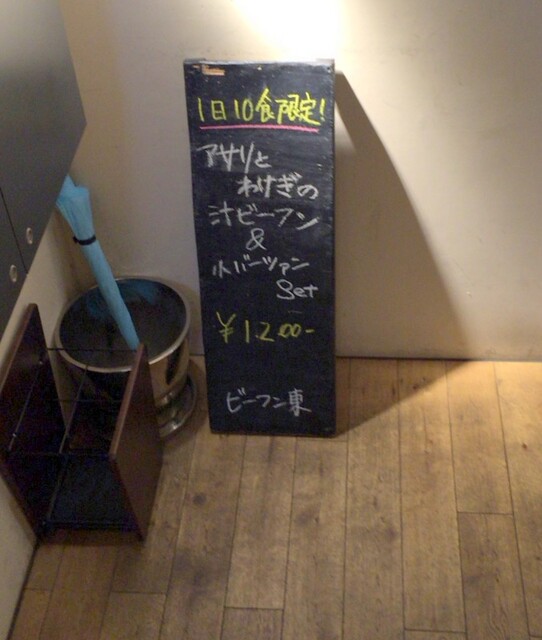 1日10食限定!
アサリと
わけぎの
汁ビーフン
&
小バーツァン
Set
¥1200-
ビーフン東